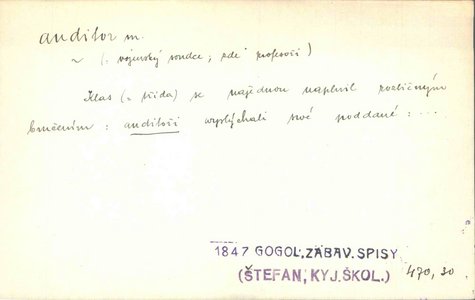 auditor m.
~ (= vojenský soudce; zde profesoři)
Klas (= třída) se najednou naplnil rozličným
bručením: auditoři vyslýchali své poddané: ...
1847 GOGOL, ZÁBAV. SPISY
(ŠTEFAN, KYJ. ŠKOL.) 470, 30